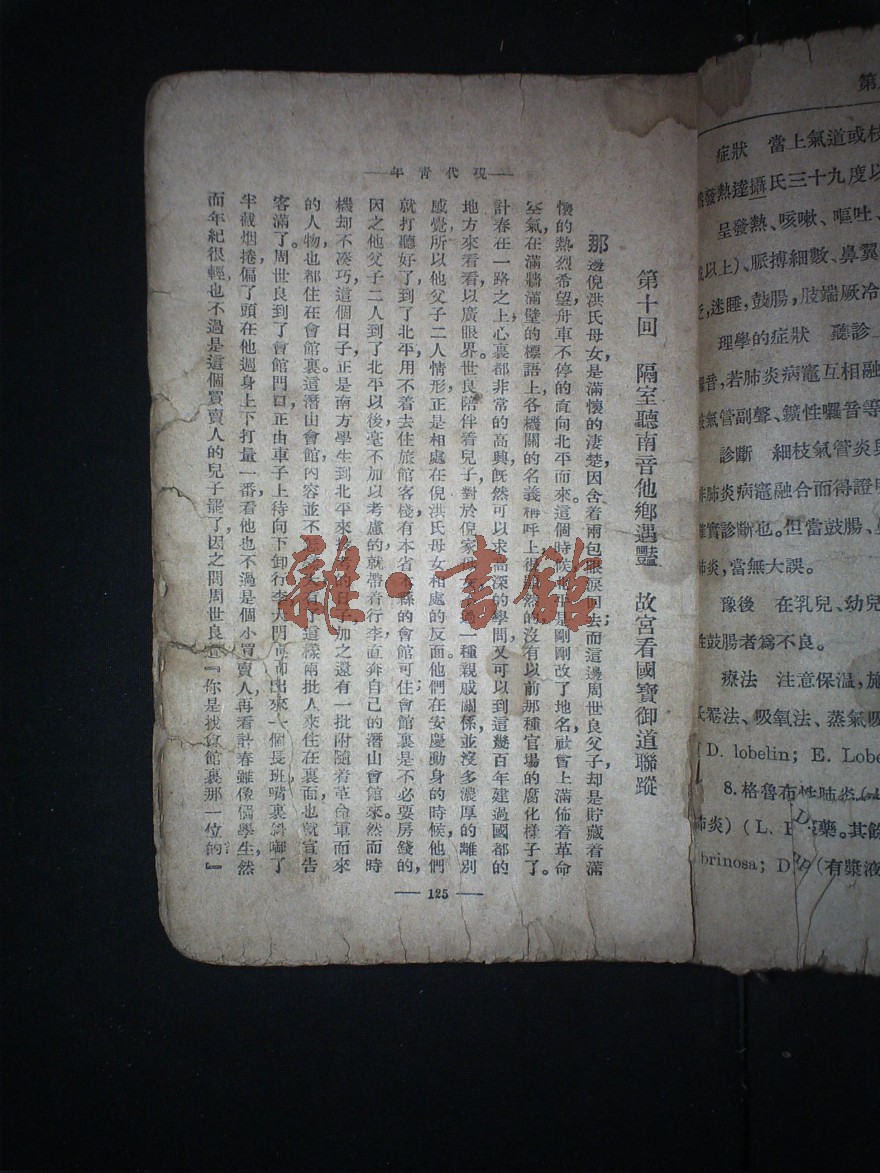 現代青年
第十回　隔室聽南音他鄉遇豔　故宮看國寶御道聯蹤
那邊倪洪氏母女，是滿懷的淒楚，因含着兩包眼淚回去；而這邊周世良父子，却是貯藏着滿
懷的熱烈希望，舟車不停的直向北平而來。這個時候是剛剛改了地名，社會上滿佈着革命
空氣，在滿牆滿壁的標語上，各機關的名義稱呼上，很的沒有以前那種官場的腐化樣子了。
計春在一路之上，心裏都非常的高興，旣然可以求高深的學問，又可以到這幾百年建過國都的
地方來看看，以廣眼界。世良陪伴着兒子，對於倪家一種親戚關係，並沒多濃厚的離別
感覺，所以他父子二人情形，正是相處在倪洪氏母女相處的反面。他們在安慶動身的時候，他們
就打聽好了，到了北平，用不着去住旅館客棧，有本省本縣的會館可住，會館裏是不必要房錢的，
因之他父子二人，到了北平以後，毫不加以考慮的，就帶着行李，直奔自己的潛山會館來。然而時
機却不凑巧，這個日子，正是南方學生到北平來考的日子，加之還有一批附隨着革命軍而來
的人物，也都住在會館裏。這潛山會館，內容並不大，有了這樣兩批人來住在裏面，也就宣告
客滿了。周世良到了會館門口，正由車子上待向下卸行李，大門裏面出來一個長班，嘴裏斜啣了
半截烟捲，偏了頭在他週身上下打量一番，看他也不過是個小買賣人，再看計春雖像個學生，然
而年紀很輕，也不過是這個買賣人的兒子罷了，因之問周世良道：『你是找會館裏那一位的』
125
第
症狀　當上氣道或枝
發熱達攝氏三十九度以
呈發熱、咳嗽、嘔吐、
以上)、脈搏細數、鼻翼
迷睡，鼓腸，肢端厥冷
理學的症狀　聽診上
音，若肺炎病竈互相融
氣管副聲、鑛性囉音等
診斷　細枝氣管炎與
肺炎病竈融合而得證明
實診斷也。但當鼓腸、
肺炎，當無大誤。
豫後　在乳兒、幼兒
性鼓腸者爲不良。
療法　注意保温，施
氏罨法、吸氧法、蒸氣吸
D. lobelin; E. Lobe
8. 格魯布性肺炎
肺炎) (L. 藥。其餘
brinosa; D (有漿液
雜·書館